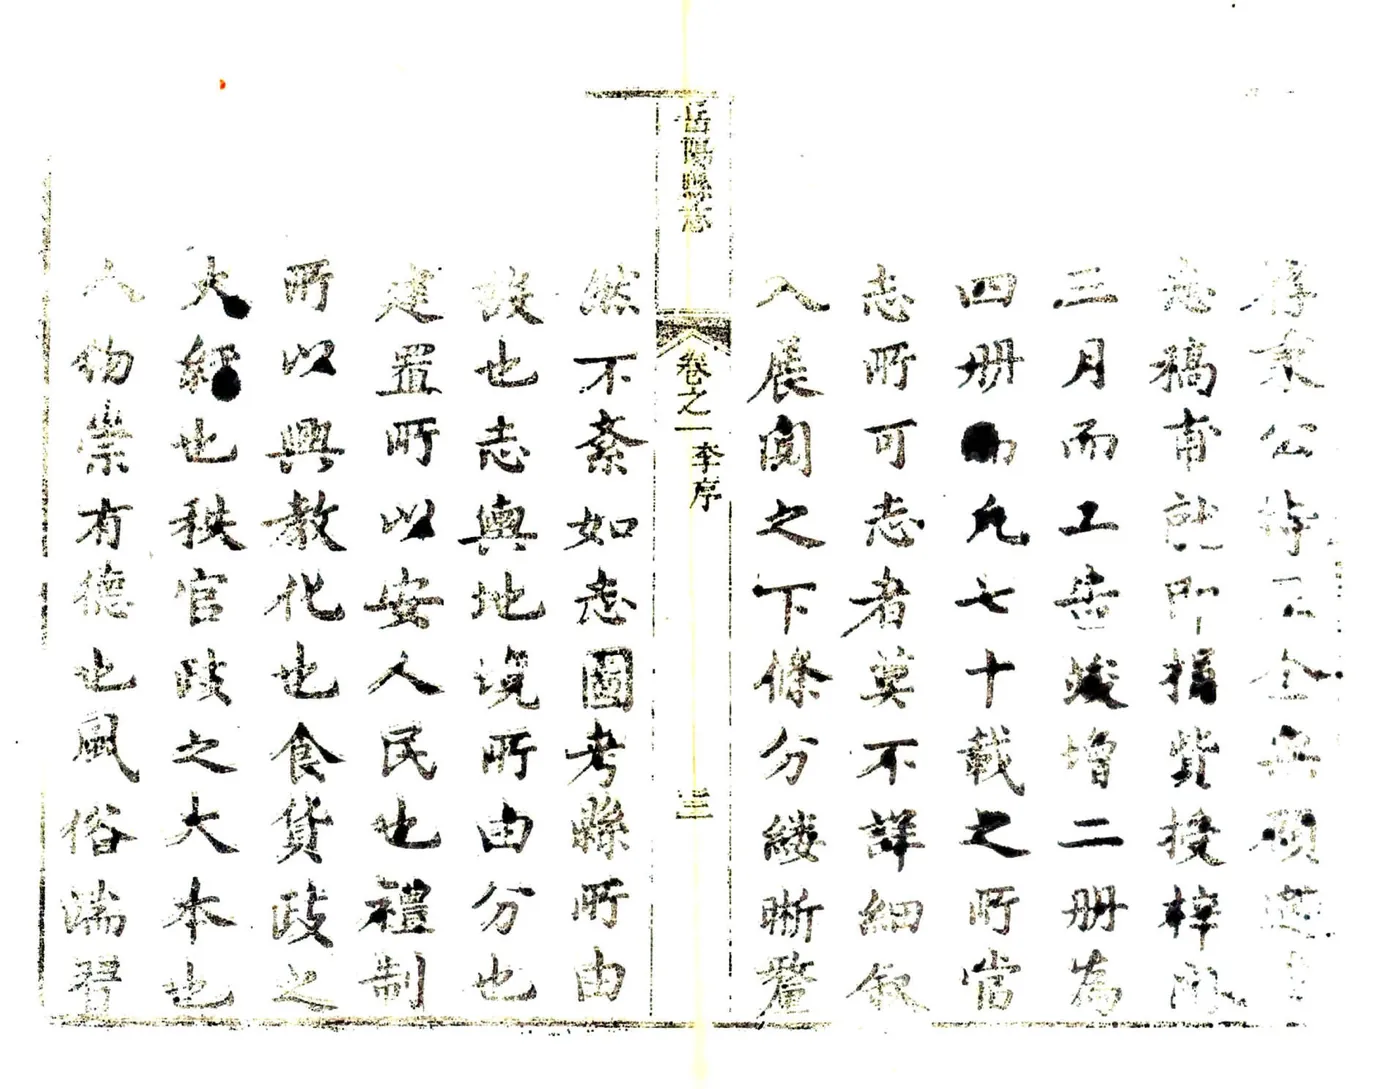 秉公持正全無顧
志稿甫就即捐貲授梓閱
三月而工告竣增二冊為
四冊凡七十載之所當
志所可志者莫不詳細敘
入展閱之下條分縷晰釐
岳陽縣志
卷之一
李序
三
然不紊如志圖考縣所由
設也志輿地境所由分也
建置所以安人民也禮制
所以興教化也食貨政之
大經也秩官政之大本也
人物崇有德也風俗端習